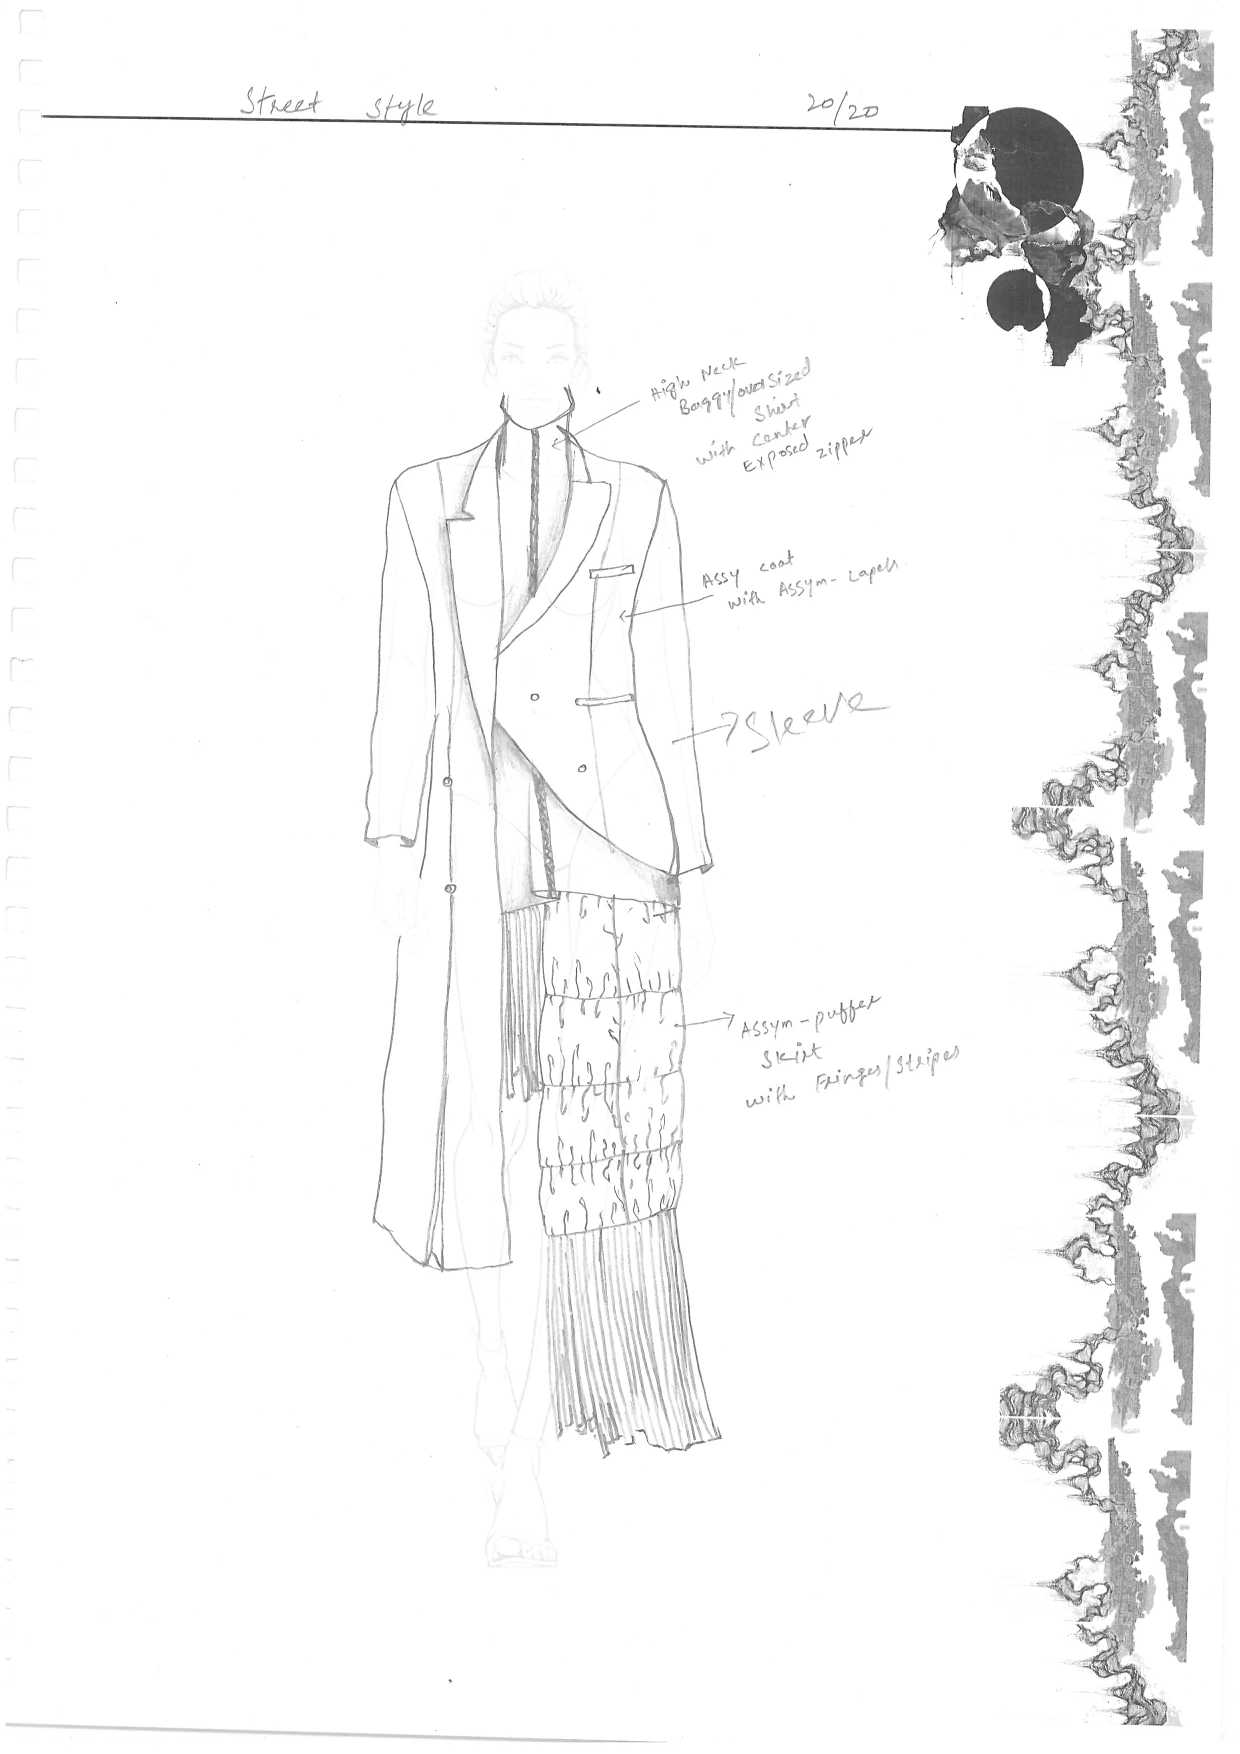 Street Style 20/20
High Neck
Baggy/oversized
Shirt
with center
Exposed zipper
Assy coat
with Assym-Lapels
Sleeve
Assym-puffer
Skirt
with Fringes/Stripes